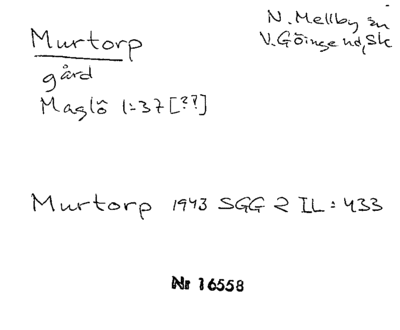 Murtorp
gård
Maglö 1:37 [??]
N. Mellby sn
V. Göinge hd, Sk
Murtorp 1943 SGG 2 IL: 433
Nr 16558